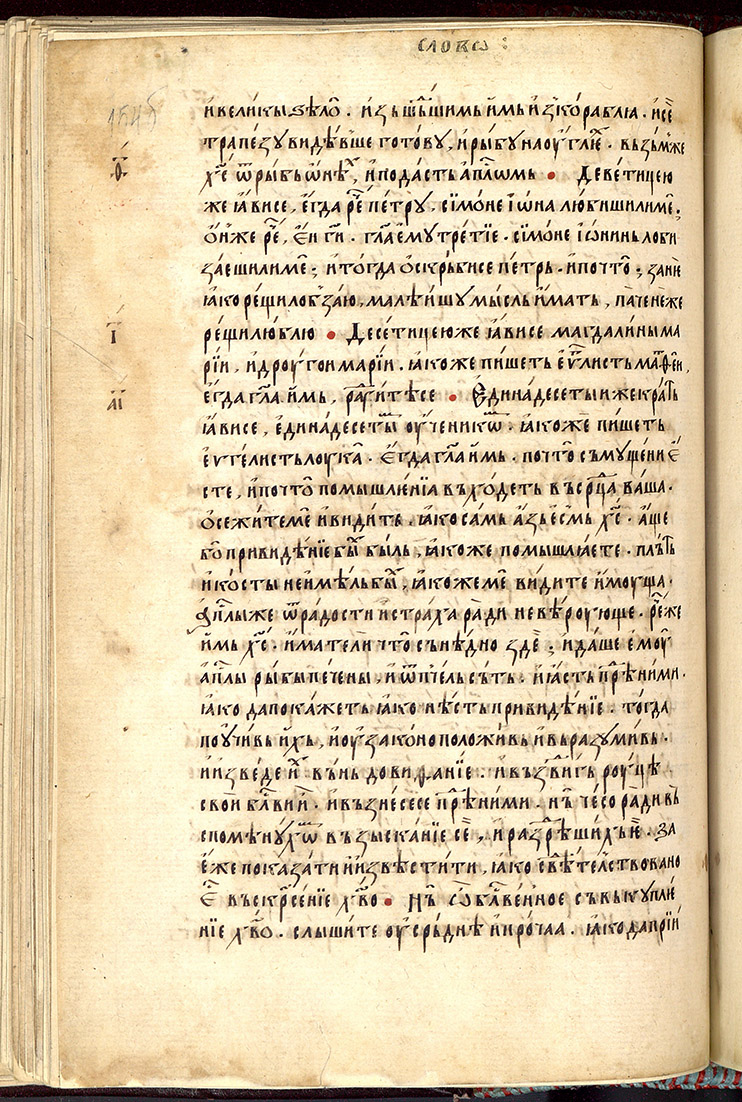 слово :
154б
и҆великыѕѣлѡ̑ . и҆зьшⷣьшимь и҆мь и҆ꙁ̾кораблꙗ . и҆сѐ
трапе́зꙋ виⷣѣвше готовꙋ , и҆рыбꙋ наоу҆глїе̑ . вьзьмже
ѳ҃
хс҃ ѿрыбь ѡ҆нѣⷯ , и҆подасть а҆пⷭ҇лѡмь • Деве́тицею
же ꙗ҆висе , е҆гда рⷱ҇е пе́трꙋ . сїмо́не і҆ѡ́на любишилиме̑ ,
ѻ҆н̾же рⷱ҇е , е҆и гⷭ҇и . гл҃а е҆мꙋ тре́тїе . сїмо́не і҆ѡ́нинь лоби
заешилиме̑ ; и҆ тогда ѻ҆скрьбисе пе́трь . и҆почто̀ ; зане̑
ꙗ҆ко ре́щи лобзаю , малѣ́ишꙋ мысль и҆мать , па́че неже
і҃
ре́щи люблю • Десе́тицеюже ꙗ҆висе магдалины ма
рїи , и҆дроугои марїи . ꙗ҆коже пишеть е҆ѵⷢ҇листь маѳе́и ,
а҃і
е҆гда гл҃а и҆мь , раⷣуитѣсе • Единадесетыиже кратⷮь
ꙗ҆висе , е҆динадесетыⷨ оу҆ченикѡⷨ . ꙗ҆коже пишеть
е҆ѵгелисть лоука̑ . е҆гда гл҃а и҆мь . почто̀ сьмꙋщени е҆
сте , и҆почто̀ помышле́нїа вьхо́деть вьсрⷣца ва́ша .
ѻ҆сежитеме̑ и҆видите . ꙗ҆ко самь а҆зь е҆смь хс҃ . а҆ще
бо̀ привидѣ́нїе быⷯ быль , ꙗ҆коже помышлꙗете . пльⷮь
и҆кости неимѣль быⷯ , ꙗ҆коже ме̑ видите и҆моуща .
а҆пⷭ҇лыже ѿрадости и҆страха ра́ди невѣроующе . рⷱ҇еже
и҆мь хс҃ . и҆мателѝ что̀ сьнѣдно здѐ ; и҆даше е҆моу̀
а҆пⷭ҇лы рыбы печены , и҆ѿпче́ль сьть . и҆ꙗ҆сть прⷣѣ ними .
ꙗ҆ко дапокажеть ꙗ҆ко нѣ́сть привидѣ́нїе . тогда
поу҆чивь и҆хь , и҆оу҆законоположивь и҆вьразꙋмивь .
и҆изведе и҆ⷯ вьнь довиѳанїе . и҆вьздвиⷢ҇ь роуцѣ
свои блⷭ҇ви и҆ⷯ . и҆вьзне́сесе прⷣѣ ними . нь че́со ради вь
спомѣнꙋхѡⷨ вьзыска́нїе се̑ , и҆разⷣрѣшихь е҆̀ . за
е́же показати и҆извѣстити , ꙗ҆ко свⷣѣтелствовано
е҆ⷭ҇ вьскрⷭ҇сенїе хв҃о • Нь ѽ блⷭ҇вен̾ное сьвькꙋпле
нїе хв҃о . слышите оу҆срьднѣ и҆прочаа . ꙗ҆ко даприи